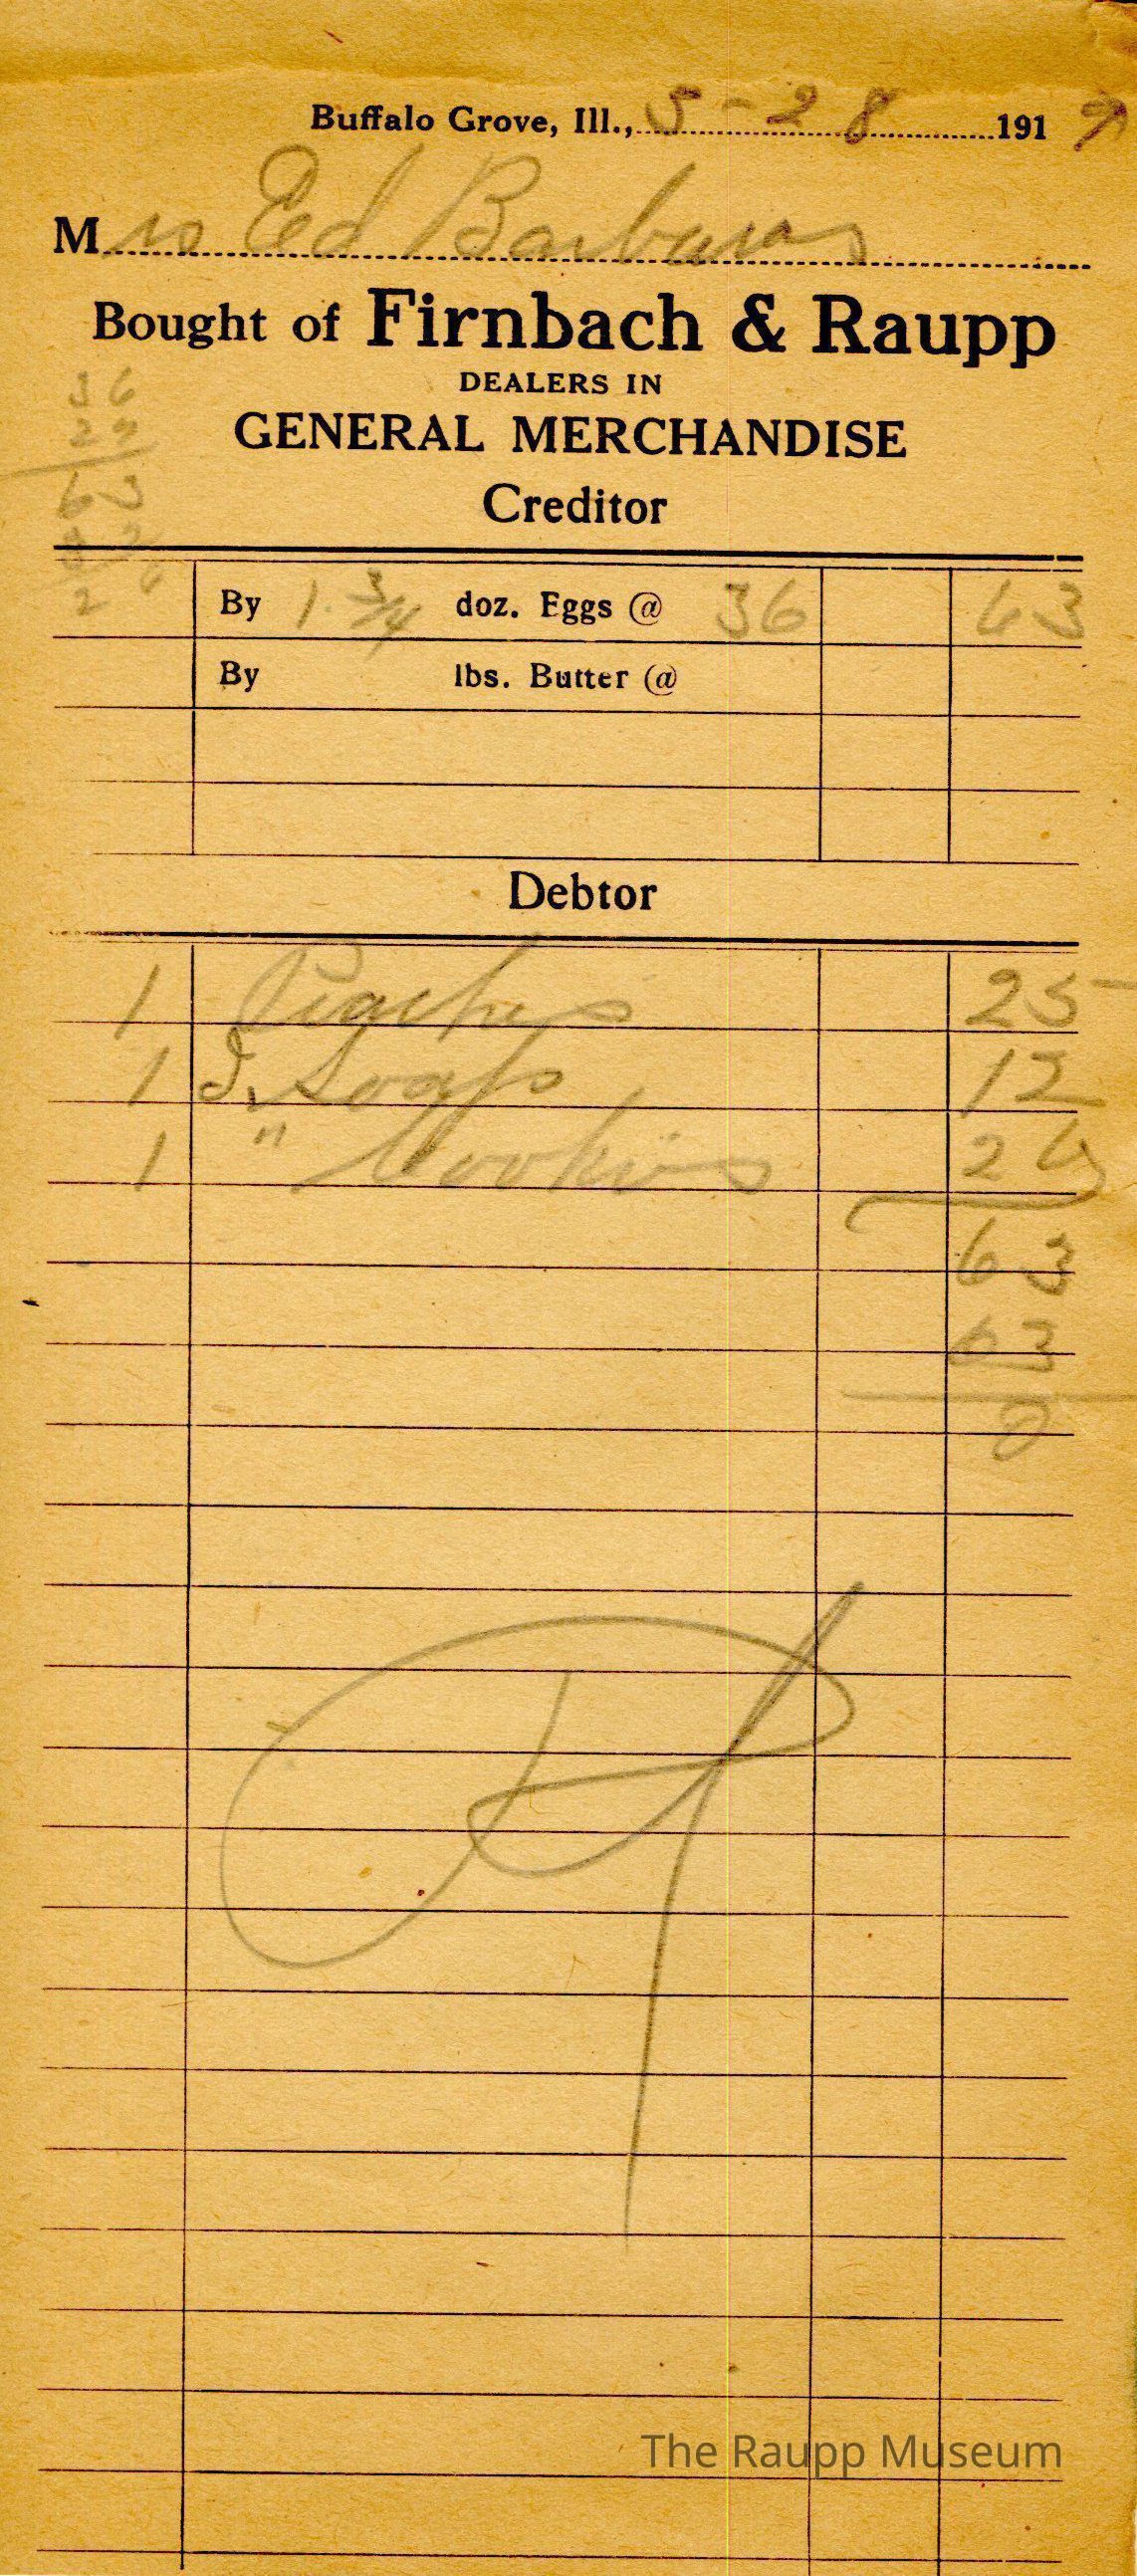 Buffalo Grove, Ill., 5-28 1917
Mrs Ed Barbaras
Bought of Firnbach & Raupp
DEALERS IN
GENERAL MERCHANDISE
Creditor
36
27
63
By 1 3/4 doz. Eggs @ 36 63
By lbs. Butter @
Debtor
1 Peaches 25
1 Soap 12
1 " Cookies 26
63
63
0
The Raupp Museum